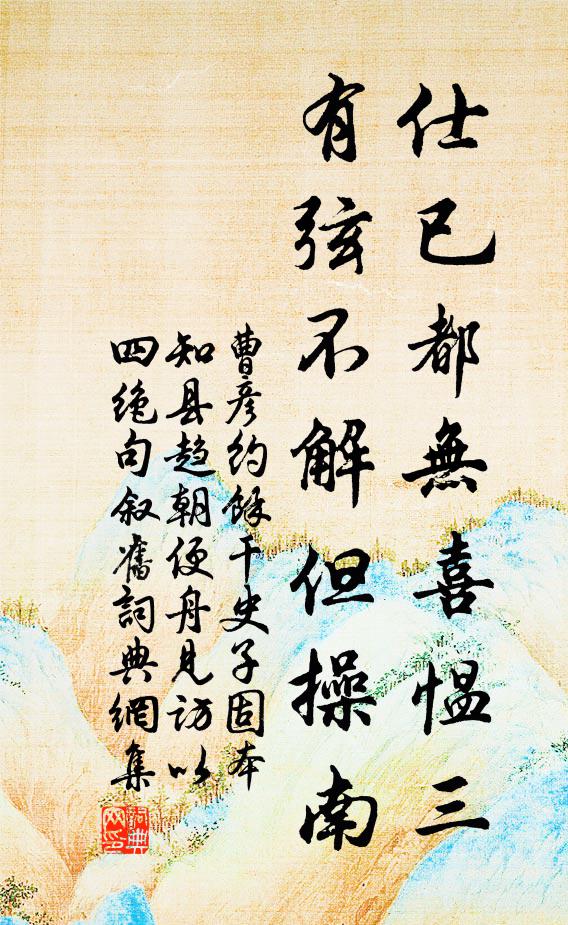 仕已都無喜愠三
有弦不解但操南
曹彦约餘干史子固本
知县趋朝便舟见访以
四绝句叙舊詞典網集
詞典網印